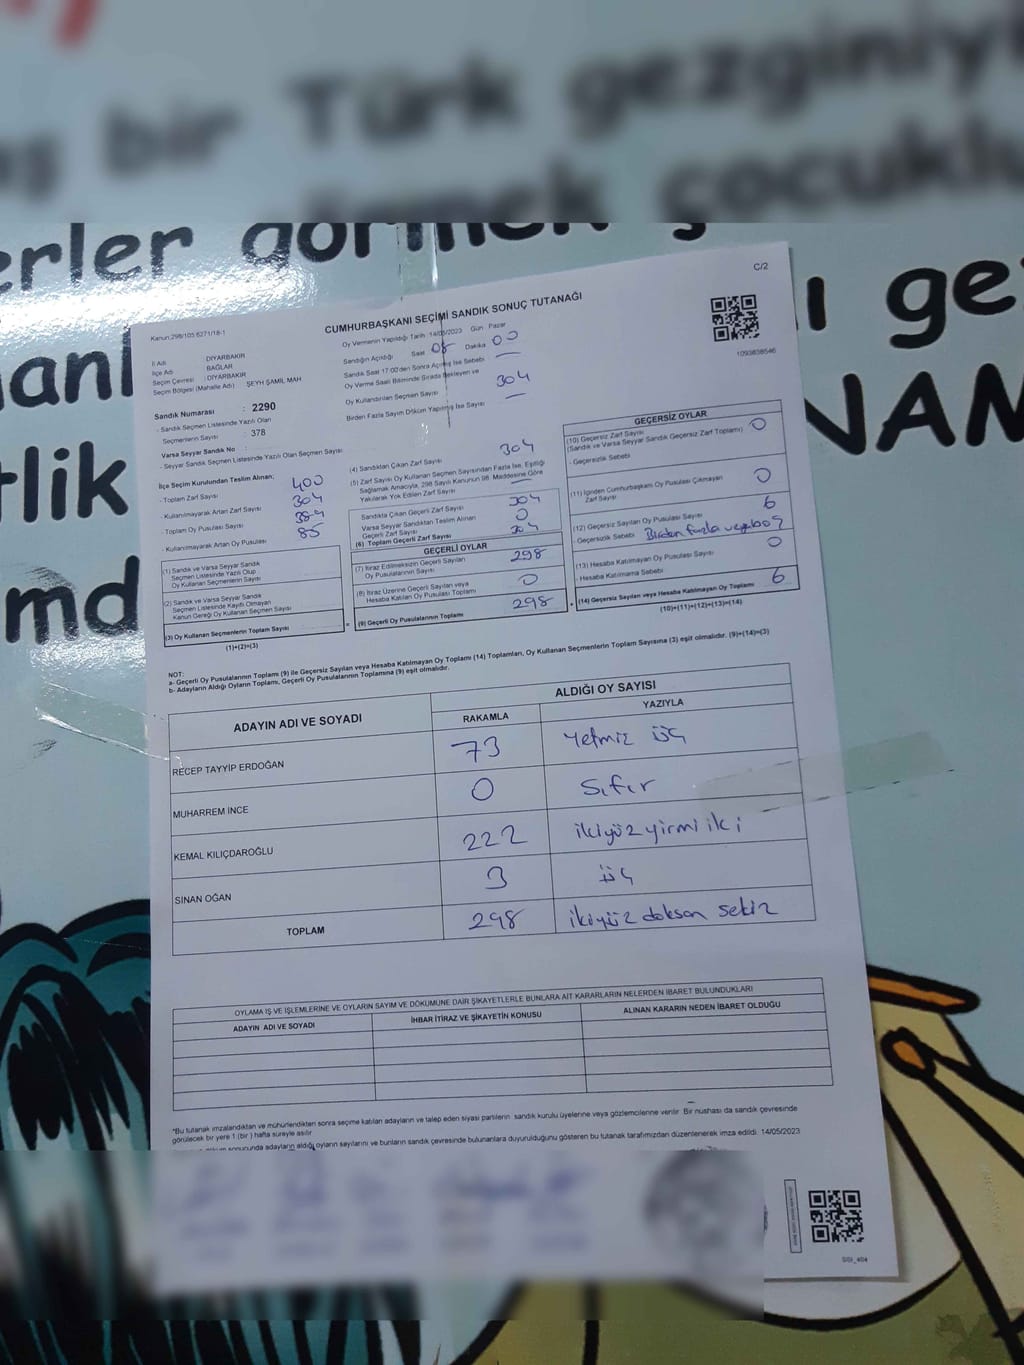 bir Türk gezginiy
görmek çocuklu
erler görmek
ı ge
anl
NAN
tlik
md
C/2
Kanun:298/105 6271/18-1
CUMHURBAŞKANI SEÇİMİ SANDIK SONUÇ TUTANAĞI
1093838546
İl Adı : DİYARBAKIR
İlçe Adı : BAĞLAR
Seçim Çevresi : DİYARBAKIR
Seçim Bölgesi (Mahalle Adı) ŞEYH ŞAMİL MAH
Sandık Numarası : 2290
- Sandık Seçmen Listesinde Yazılı Olan
Seçmenlerin Sayısı : 378
Varsa Seyyar Sandık No :
- Seyyar Sandık Seçmen Listesinde Yazılı Olan Seçmen Sayısı
Oy Vermenin Yapıldığı Tarih :14/05/2023 Gün Pazar
Sandığın Açıldığı Saat 08 Dakika 00
Sandık Saat 17:00'den Sonra Açılmış İse Sebebi
Oy Verme Saati Bitiminde Sırada Bekleyen ve
Oy Kullandırılan Seçmen Sayısı 304
Birden Fazla Sayım Döküm Yapılmış İse Sayısı
İlçe Seçim Kurulundan Teslim Alınan;
- Toplam Zarf Sayısı 400
- Kullanılmayarak Artan Zarf Sayısı 304
- Toplam Oy Pusulası Sayısı 389
- Kullanılmayarak Artan Oy Pusulası 85
(1) Sandık ve Varsa Seyyar Sandık
Seçmen Listesinde Yazılı Olup
Oy Kullanan Seçmenlerin Sayısı
(2) Sandık ve Varsa Seyyar Sandık
Seçmen Listesinde Kayıtlı Olmayan
Kanun Gereği Oy Kullanan Seçmen Sayısı
(3) Oy Kullanan Seçmenlerin Toplam Sayısı
(1)+(2)=(3)
(4) Sandıktan Çıkan Zarf Sayısı 304
(5) Zarf Sayısı Oy Kullanan Seçmen Sayısından Fazla İse, Eşitliği
Sağlamak Amacıyla, 298 Sayılı Kanunun 98. Maddesine Göre
Yakılarak Yok Edilen Zarf Sayısı
Sandıkta Çıkan Geçerli Zarf Sayısı 304
Varsa Seyyar Sandıktan Teslim Alınan
Geçerli Zarf Sayısı 0
(6) Toplam Geçerli Zarf Sayısı 304
GEÇERLİ OYLAR
(7) İtiraz Edilmeksizin Geçerli Sayılan
Oy Pusulalarının Sayısı 298
(8) İtiraz Üzerine Geçerli Sayılan veya
Hesaba Katılan Oy Pusulası Toplamı 0
(9) Geçerli Oy Pusulalarının Toplamı 298
GEÇERSİZ OYLAR
(10) Geçersiz Zarf Sayısı
(Sandık ve Varsa Seyyar Sandık Geçersiz Zarf Toplamı) 0
- Geçersizlik Sebebi
(11) İçinden Cumhurbaşkanı Oy Pusulası Çıkmayan
Zarf Sayısı 0
(12) Geçersiz Sayılan Oy Pusulası Sayısı 6
- Geçersizlik Sebebi Birden fazla veya boş
(13) Hesaba Katılmayan Oy Pusulası Sayısı 0
- Hesaba Katılmama Sebebi
(14) Geçersiz Sayılan veya Hesaba Katılmayan Oy Toplamı 6
(10)+(11)+(12)+(13)=(14)
NOT:
a- Geçerli Oy Pusulalarının Toplamı (9) ile Geçersiz Sayılan veya Hesaba Katılmayan Oy Toplamı (14) Toplamları, Oy Kullanan Seçmenlerin Toplam Sayısına (3) eşit olmalıdır. (9)+(14)=(3)
b- Adayların Aldığı Oyların Toplamı, Geçerli Oy Pusulalarının Toplamına (9) eşit olmalıdır.
ADAYIN ADI VE SOYADI ALDIĞI OY SAYISI
RAKAMLA YAZIYLA
RECEP TAYYİP ERDOĞAN 73 Yetmiz üç
MUHARREM İNCE 0 Sıfır
KEMAL KILIÇDAROĞLU 222 ikiyüz yirmi iki
SİNAN OĞAN 3 üç
TOPLAM 298 ikiyüz doksan sekiz
OYLAMA İŞ VE İŞLEMLERİNE VE OYLARIN SAYIM VE DÖKÜMÜNE DAİR ŞİKAYETLERLE BUNLARA AİT KARARLARIN NELERDEN İBARET BULUNDUKLARI
ADAYIN ADI VE SOYADI İHBAR İTİRAZ VE ŞİKAYETİN KONUSU ALINAN KARARIN NEDEN İBARET OLDUĞU
*Bu tutanak imzalandıktan ve mühürlendikten sonra seçime katılan adayların ve talep eden siyasi partilerin sandık kurulu üyelerine veya gözlemcilerine verilir. Bir nüshası da sandık çevresinde
görülecek bir yere 1 (bir) hafta süreyle asılır
sonucunda adayların aldığı oyların sayılarını ve bunların sandık çevresinde bulunanlara duyurulduğunu gösteren bu tutanak tarafımızdan düzenlenerek imza edildi. 14/05/2023